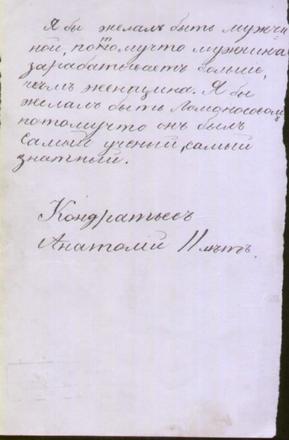 Я бы желалъ быть мужчи
ной, потомучто мужчина
зарабатываетъ больше,
чѣмъ женщина. Я бы
желалъ быть Ломоносовым
потомучто онъ былъ
самый ученый, самый
знатный.
Кондратьевъ
Анатолій 11 лѣтъ.